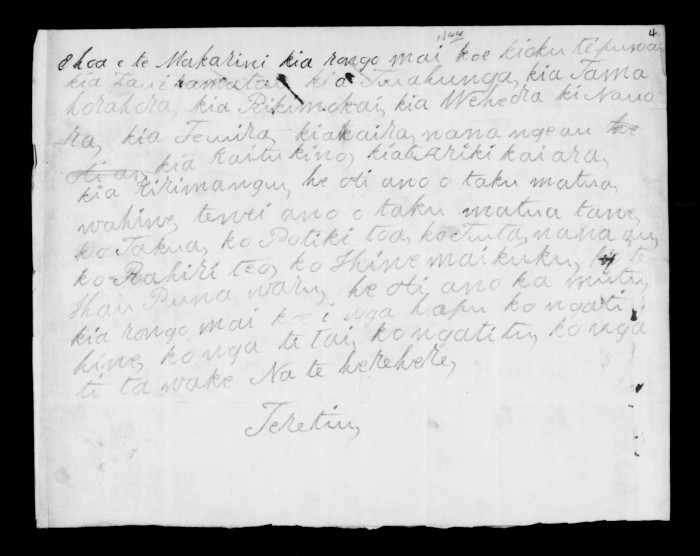 1844
4
Ehoa e te Makarini kia rongo mai koe kioku tipuna,
kia Tawi hamatau kia Turahunga, kia Tama
horahora, kia Rikimokai, kia Wehe ki Nauo
ra, kia Tewira, kiakaira, nana ngeau he
oti an, kia Kaitu kino, kiate Ariki kaiara,
kia Kirimangu, he oti ano o taku matua,
wahine, tenei ano o taku matua tane,
ko Takua, ko Potiki toa, ko Tuta, nana au,
ko Rahiri teo, ko Hinemaikuku,
Ihau Puna waru, he oti ano ka mutu,
kia rongo mai koe i nga hapu ko ngati
hine, ko nga te tai, ko ngati tu, ko nga
ti ta wake Na te herehere,
Teretiu,